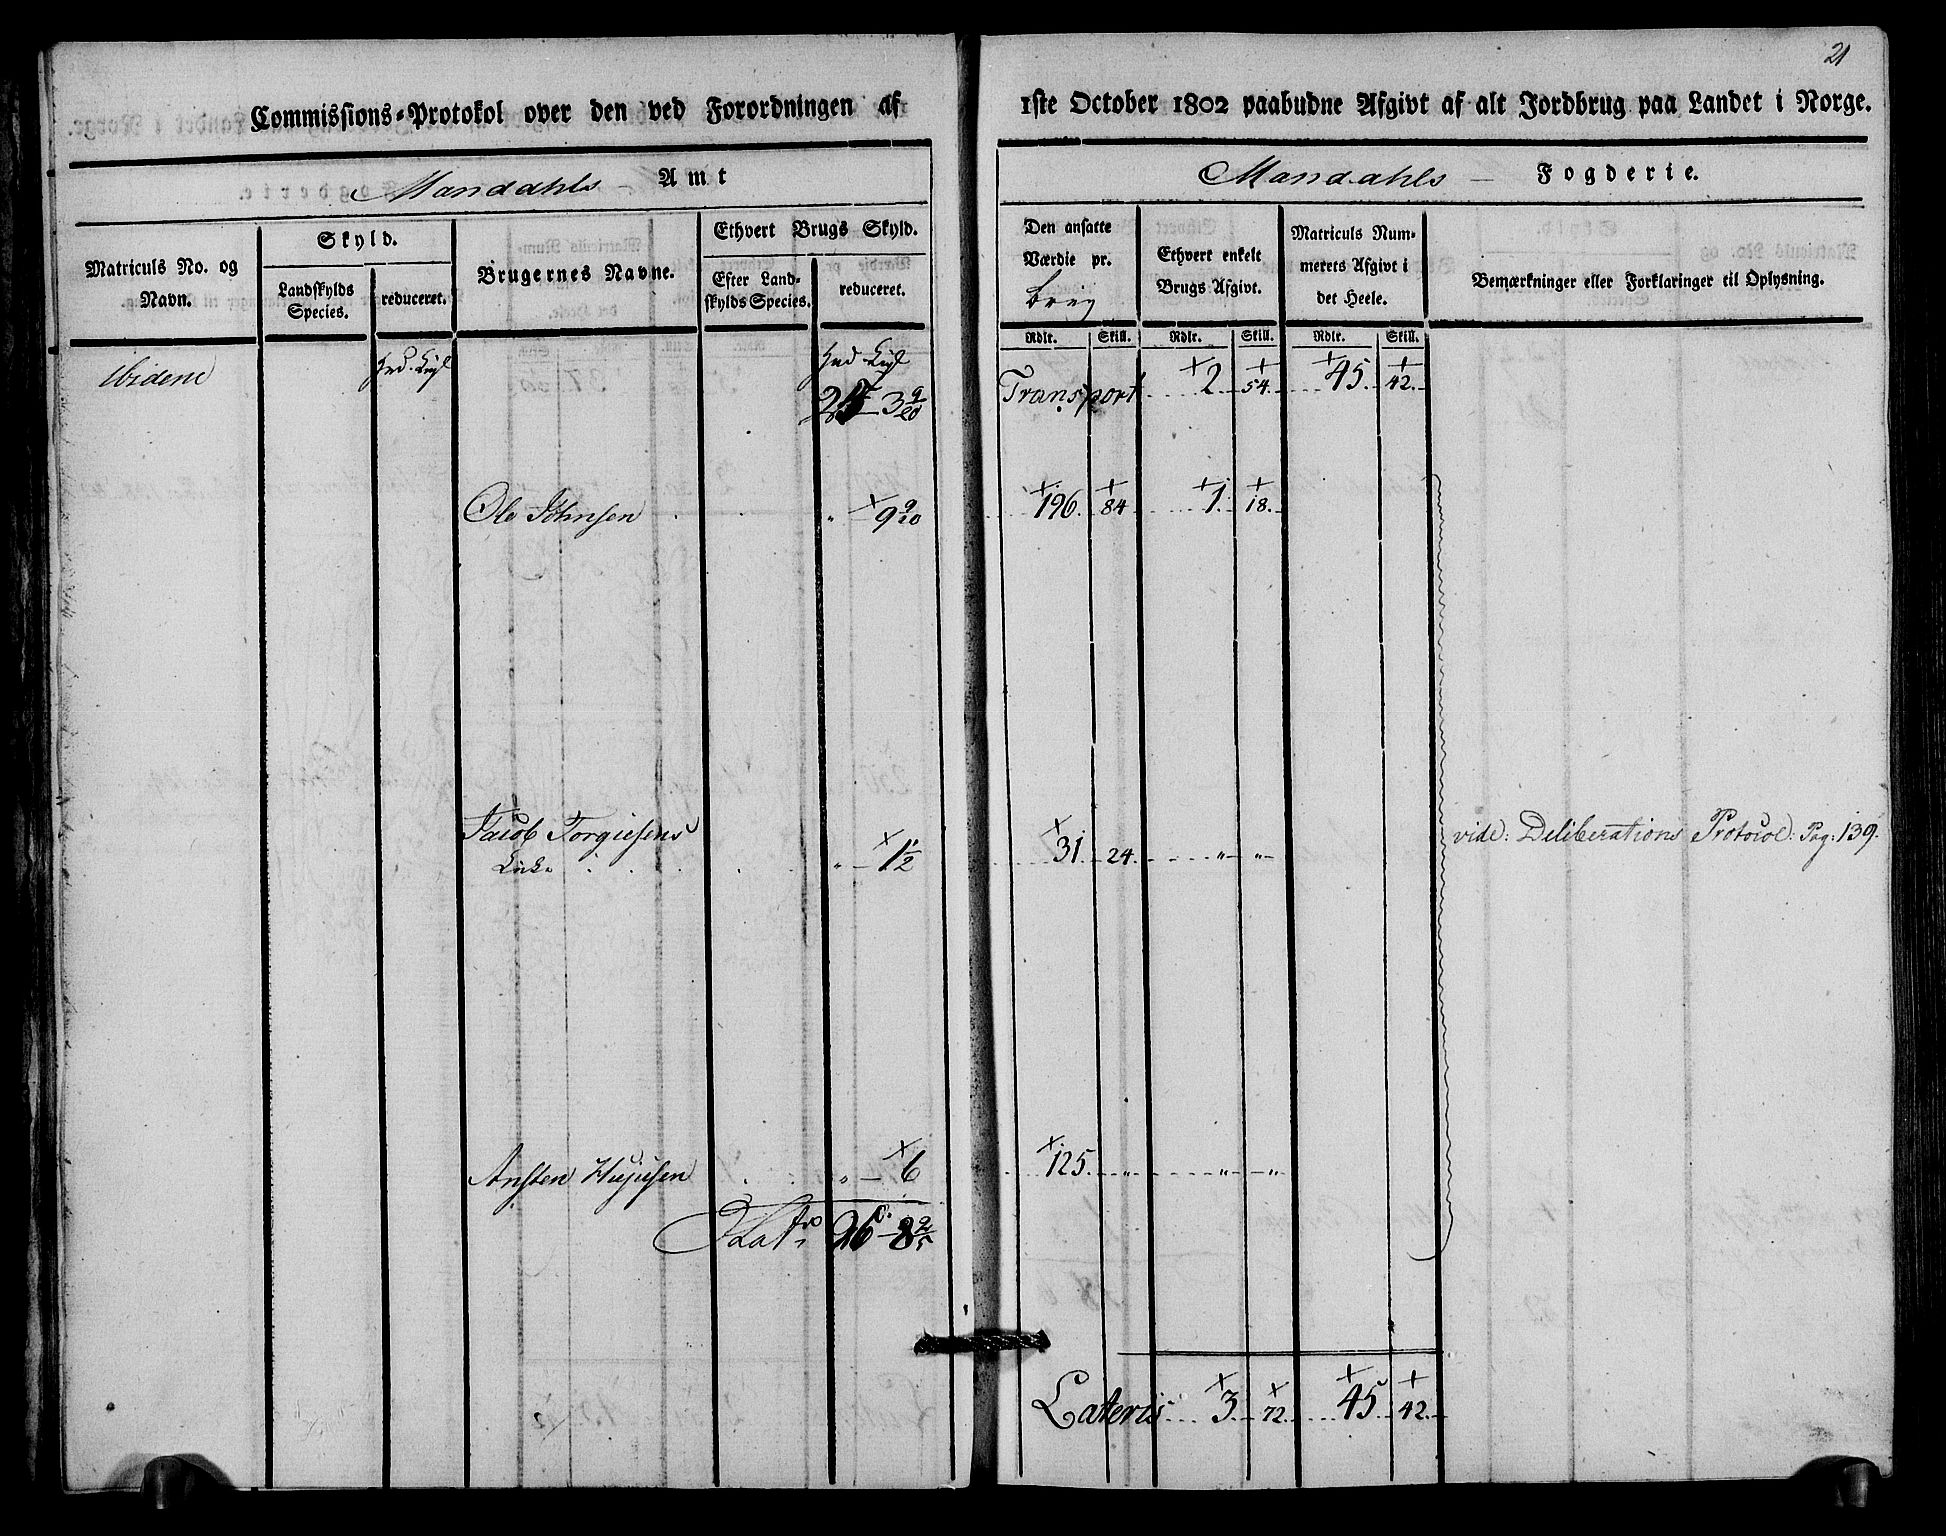 21
Commissions-Protokol over den ved Forordningen af 1ste October 1802 paabudne Afgivt af alt Jordbrug paa Landet i Norge.
Mandahls Amt
Mandahls Fogderie.
Matriculs No. og Navn.
Skyld.
Landskylds Species.
reduceret.
Brugernes Navne.
Ethvert Brugs Skyld.
Efter Landskylds Species.
reduceret.
Den ansatte Værdie pr. brug
Ethvert enkelt Brugs Afgivt.
Matriculs Nummerets Afgivt i det Heele.
Bemærkninger eller Forklaringer til Oplysning.
Rdlr. Skill. Rdlr. Skill. Rdlr. Skill.
Ibidem
Transport 2 54. 45. 42.
Ole Johnsen 9 9/20 196. 84 1. 18.
Jacob Torgiesens 1 1/2 31 24 " " vide: Deliberations Protocol: Pag: 139.
Ansten 6 125. " " "
26 8 2/5
Lateris 3 72. 45 42.